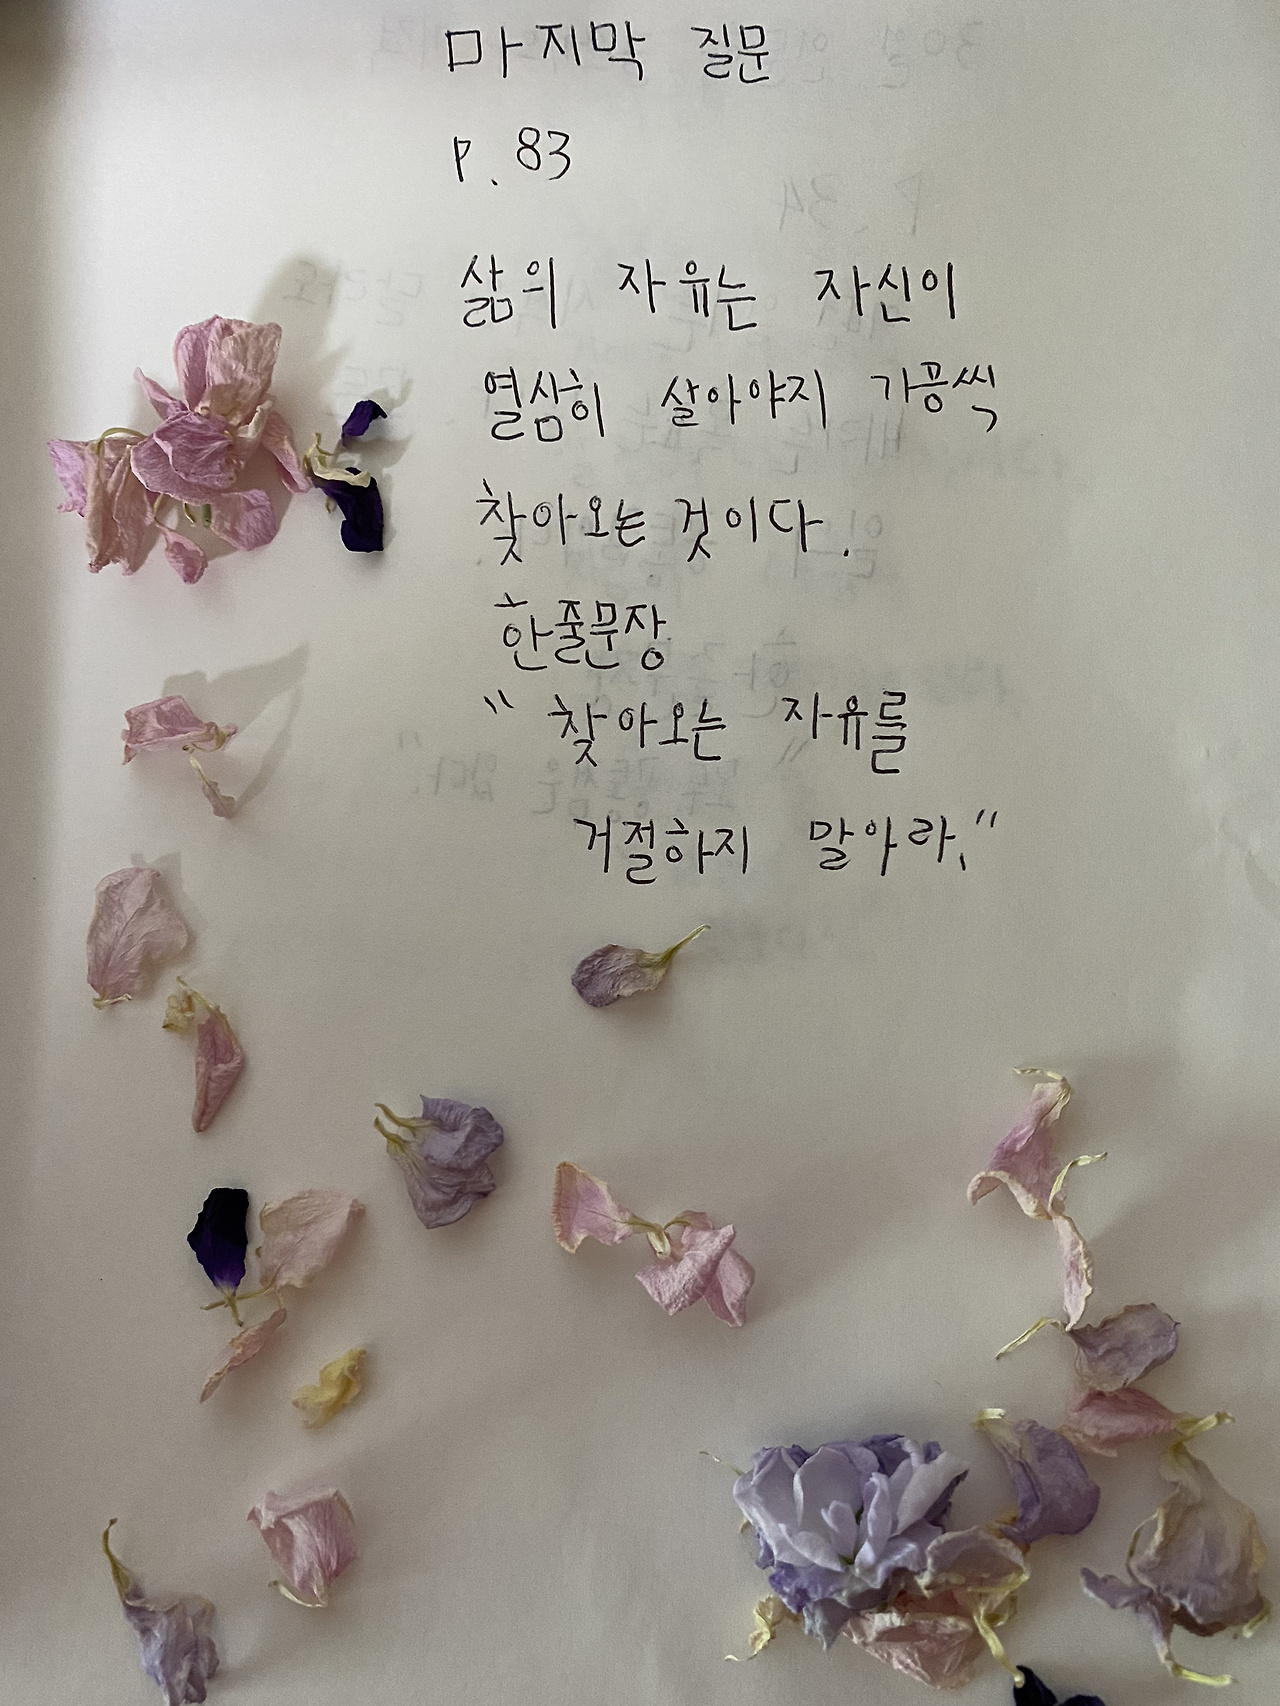 마지막 질문
P. 83
삶의 자유는 자신이
열심히 살아야지 가끔씩
찾아오는 것이다.
한줄문장
"찾아오는 자유를
거절하지 말아라."